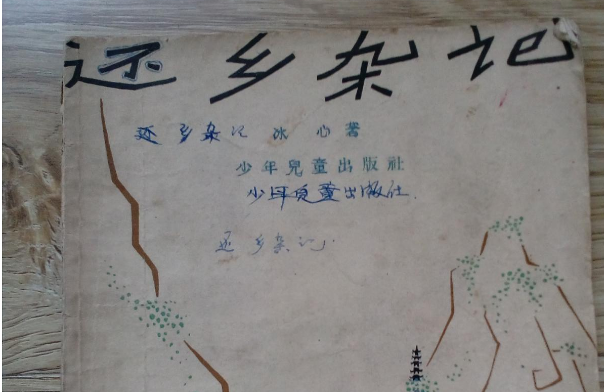 还乡杂记
还乡杂记 冰心著
少年兒童出版社
少年兒童出版社
还乡杂记